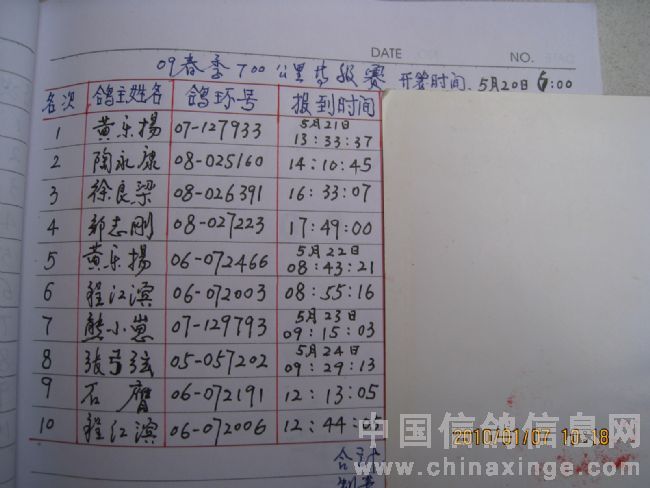 DATE NO. DATE
09春季700公里晋级赛 开笼时间、5月20日 6:00
名次 鸽主姓名 鸽环号 报到时间
1 黄乐揚 07-127933 5月21日 13:33:37
2 陶永康 08-025160 14:10:45
3 徐良梁 08-026391 16:33:07
4 郭志刚 08-027223 17:49:00
5 黄乐揚 06-072466 5月22日 08:43:21
6 程江滨 06-072003 08:55:16
7 熊小崽 07-129793 5月23日 09:15:03
8 张弓弦 05-057202 5月24日 09:29:13
9 石 06-072191 12:13:05
10 程江滨 06-072006 12:44:05
中国信鸽信息网
2010/01/07 10:18
www.chinaxinge.com